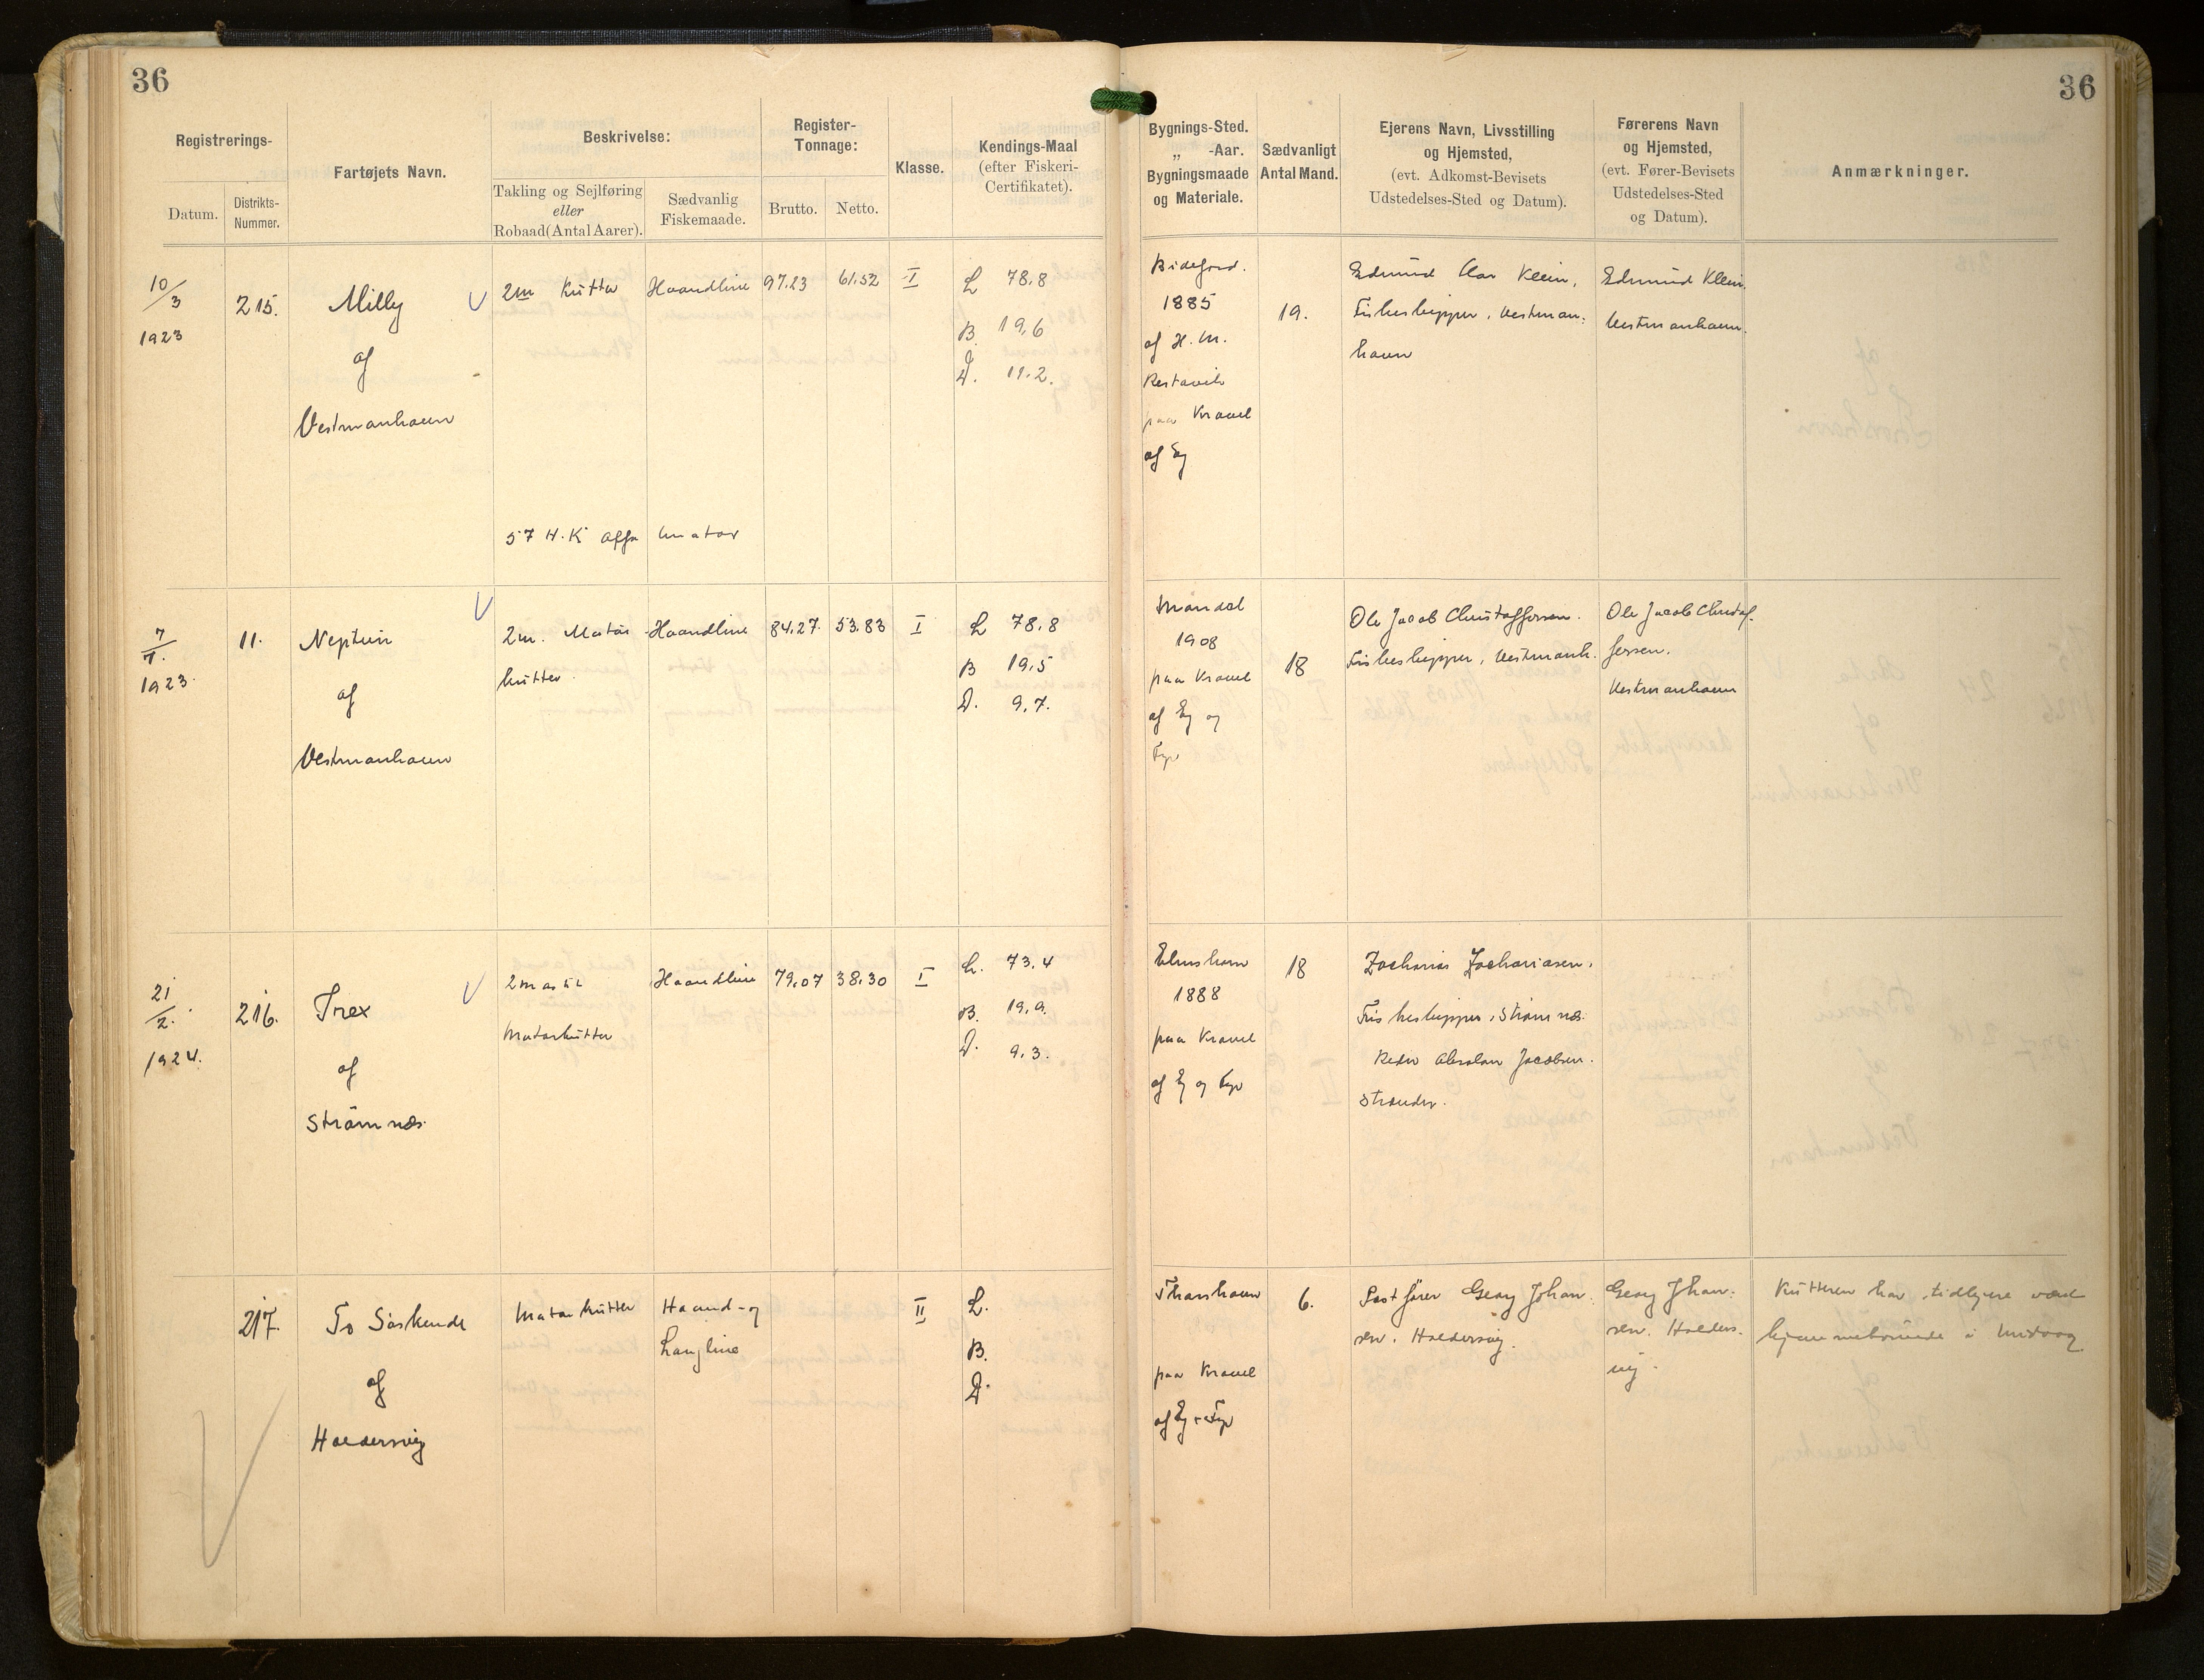 36
36
Registrerings-
Datum.
Distrikts-
Nummer.
Fartøjets Navn.
Beskrivelse:
Takling og Sejlføring
eller
Robaad (Antal Aarer).
Sædvanlig
Fiskemaade.
Register-
Tonnage:
Brutto.
Netto.
Klasse.
Kendings-Maal
(efter Fiskeri-
Certifikatet).
Bygnings-Sted.
„ -Aar.
Bygningsmaade
og Materiale.
Sædvanligt
Antal Mand.
Ejerens Navn, Livsstilling
og Hjemsted,
(evt. Adkomst-Bevisets
Udstedelses-Sted og Datum).
Førerens Navn
og Hjemsted,
(evt. Fører-Bevisets
Udstedelses-Sted
og Datum).
Anmærkninger.
10/3
1923
215.
Milly
af
Vestmanhavn
2m Kutter
57 H.K
motor
Haandline
97.23
61.52
I
L 78.8
B 19,6
D. 11.2.
Bideford.
1885
af H. M.
paa Kravel
af Eg
19.
Edmund Klein,
Fiskeskipper, Vestman=
havn
Edmund Klein.
Vestmanhavn.
7/7.
1923.
11.
Neptun
af
Vestmanhavn
2m. Motor
kutter.
Haandline
84.27.
53.83
I
L 78.8
B 19,5
D. 9,7.
Mandal
1908
paa Kravel
af Eg og
Fyr
18
Ole Jacob Christoffersen.
Fiskeskipper, Vestmanh.
Ole Jacob Christof-
fersen.
Vestmanhavn
21/2.
1924.
216.
Trex
af
Strømnæs.
2mastet
Motorkutter
Haandline
79.07
38.30
I
L. 73.4
B. 19.9.
D. 9.3.
Elmshorn
1888
paa Kravel
af Eg og Fyr
18
Zacharias Zachariasen,
Fiskeskipper, Strømnæs.
Reder Absalon Jacobsen.
Strender.
217.
To Søskende
af
Haldersvig
Motorkutter
Haand- og
Langline
II
L.
B.
D.
Thorshavn
paa Kravel
af Eg & Fyr
6.
Postfører Georg Johan-
sen. Haldersvig.
Georg Johan-
sen. Halders-
vig.
Kutteren har tidligere været
hjemmehørende i Midvaag